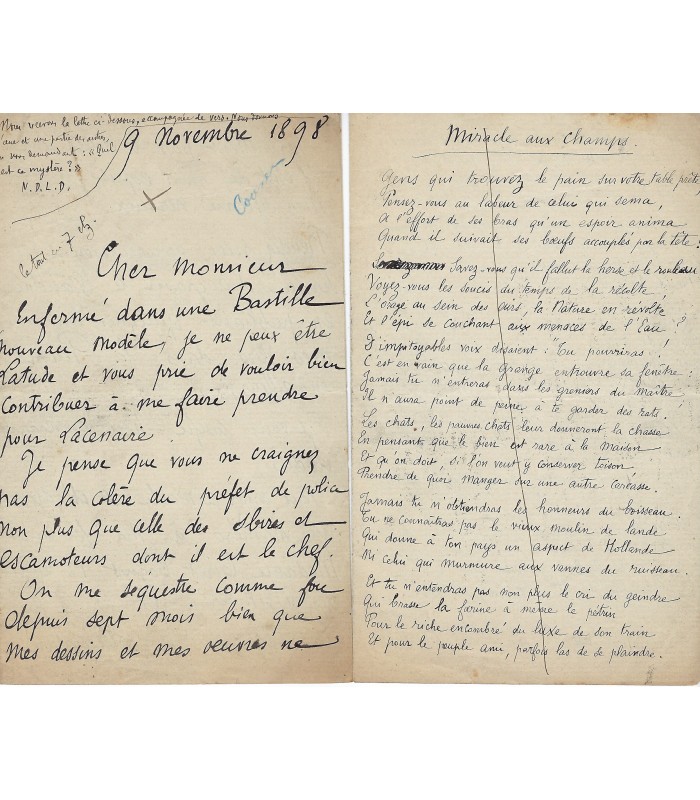 Nous recevons la lettre ci-dessous, accompagnée de vers. Nous donnons
l'une et une partie des autres,
en vous demandant : « Quel
est ce mystère ? »
N.D.L.D.
9 Novembre 1898
le tout en 7
Cher Monsieur
Enfermé dans une Bastille
nouveau modèle, je ne peux être
Latude et vous prie de vouloir bien
contribuer à me faire prendre
pour Lacenaire.
Je pense que vous ne craignez
pas la colère du préfet de police
non plus que celle des sbires et
escamoteurs dont il est le chef.
On me séquestre comme fou
depuis sept mois bien que
mes dessins et mes œuvres ne
Miracle aux champs.
Gens qui trouvez le pain sur votre table prêt,
Pensez-vous au labeur de celui qui sema,
A l'effort de ses bras qu'un espoir anima
Quand il suivait ses bœufs accouplés par la tête ?
Savez-vous qu'il fallut la herse et le rouleau
Voyez-vous les soucis du temps de la récolte,
L'orage au sein des airs, la Nature en révolte
Et l'épi se couchant aux menaces de l'Eau ?
D'impitoyables voix disaient : "Tu pourriras !
C'est en vain que la Grange entrouvre sa fenêtre :
Jamais tu n'entreras dans les greniers du Maître
Il n'aura point de peine à te garder des rats.
Les chats, les pauvres chats leur donneront la chasse
En pensant que le bien est rare à la maison
Et qu'on doit, si l'on veut y conserver toison
Prendre de quoi manger sur une autre carcasse.
Jamais tu n'obtiendras les honneurs du boisseau.
Tu ne connaîtras pas le vieux moulin de lande
Qui donne à ton pays un aspect de Hollande
Ni celui qui murmure aux vannes du ruisseau.
Et tu n'entendras pas non plus le cri du geindre
Qui brasse la farine à même le pétrin
Pour le riche encombré du luxe de son train
Et pour le peuple ami, parfois las de se plaindre.